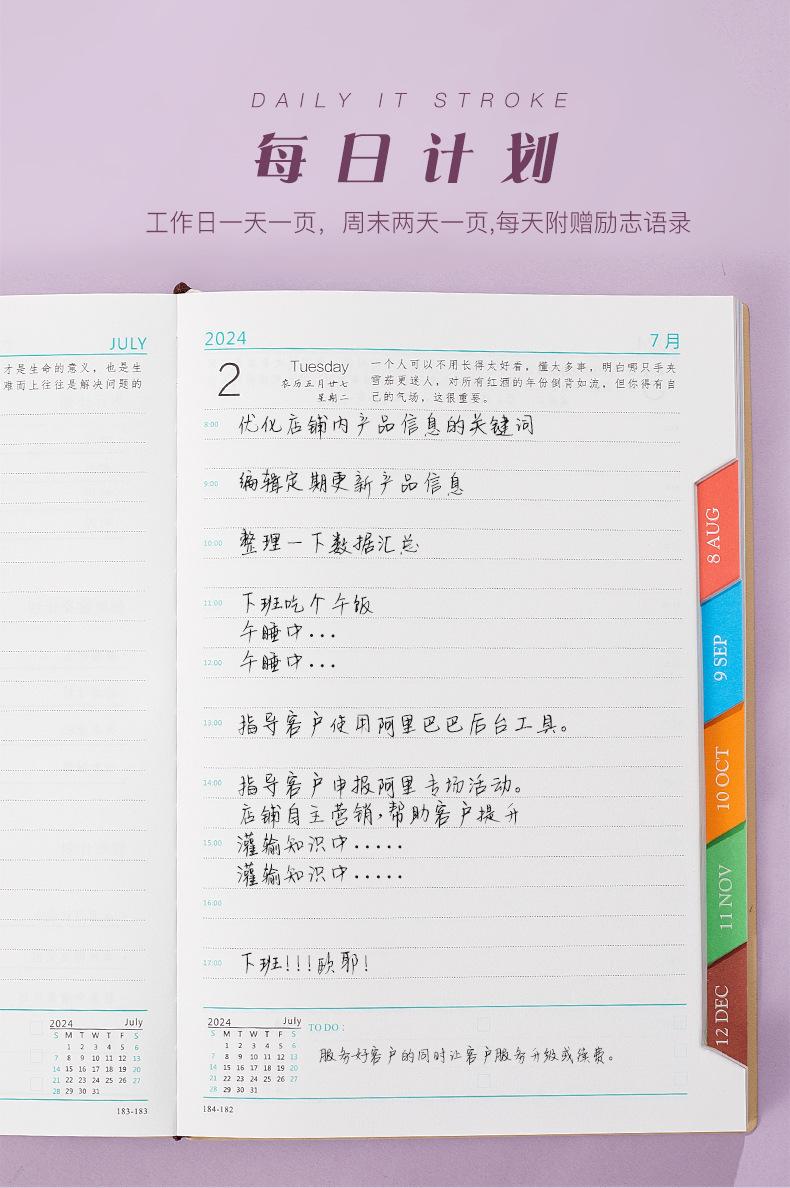 DAILY IT STROKE
每日计划
工作日一天一页，周末两天一页,每天附赠励志语录
JULY
才是生命的意义，也是生
难而上往往是解决问题的
2024 July
S M T W T F S
1 2 3 4 5 6
7 8 9 10 11 12 13
14 15 16 17 18 19 20
21 22 23 24 25 26 27
28 29 30 31
183-183
2024 7月
2 Tuesday
农历五月廿七
星期二
一个人可以不用长得太好看，懂太多事，明白哪只手夹
雪茄更迷人，对所有红酒的年份倒背如流，但你得有自
己的气场，这很重要。
8:00 优化店铺内产品信息的关键词
9:00 编辑定期更新产品信息
10:00 整理一下数据汇总
11:00 下班吃个午饭
午睡中...
12:00 午睡中...
13:00 指导客户使用阿里巴巴后台工具。
14:00 指导客户申报阿里专场活动。
店铺自主营销,帮助客户提升
15:00 灌输知识中.....
灌输知识中.....
16:00
17:00 下班!!!欧耶!
2024 July
S M T W T F S
1 2 3 4 5 6
7 8 9 10 11 12 13
14 15 16 17 18 19 20
21 22 23 24 25 26 27
28 29 30 31
TO DO :
服务好客户的同时让客户服务升级或续费。
184-182
8 AUG
9 SEP
10 OCT
11 NOV
12 DEC